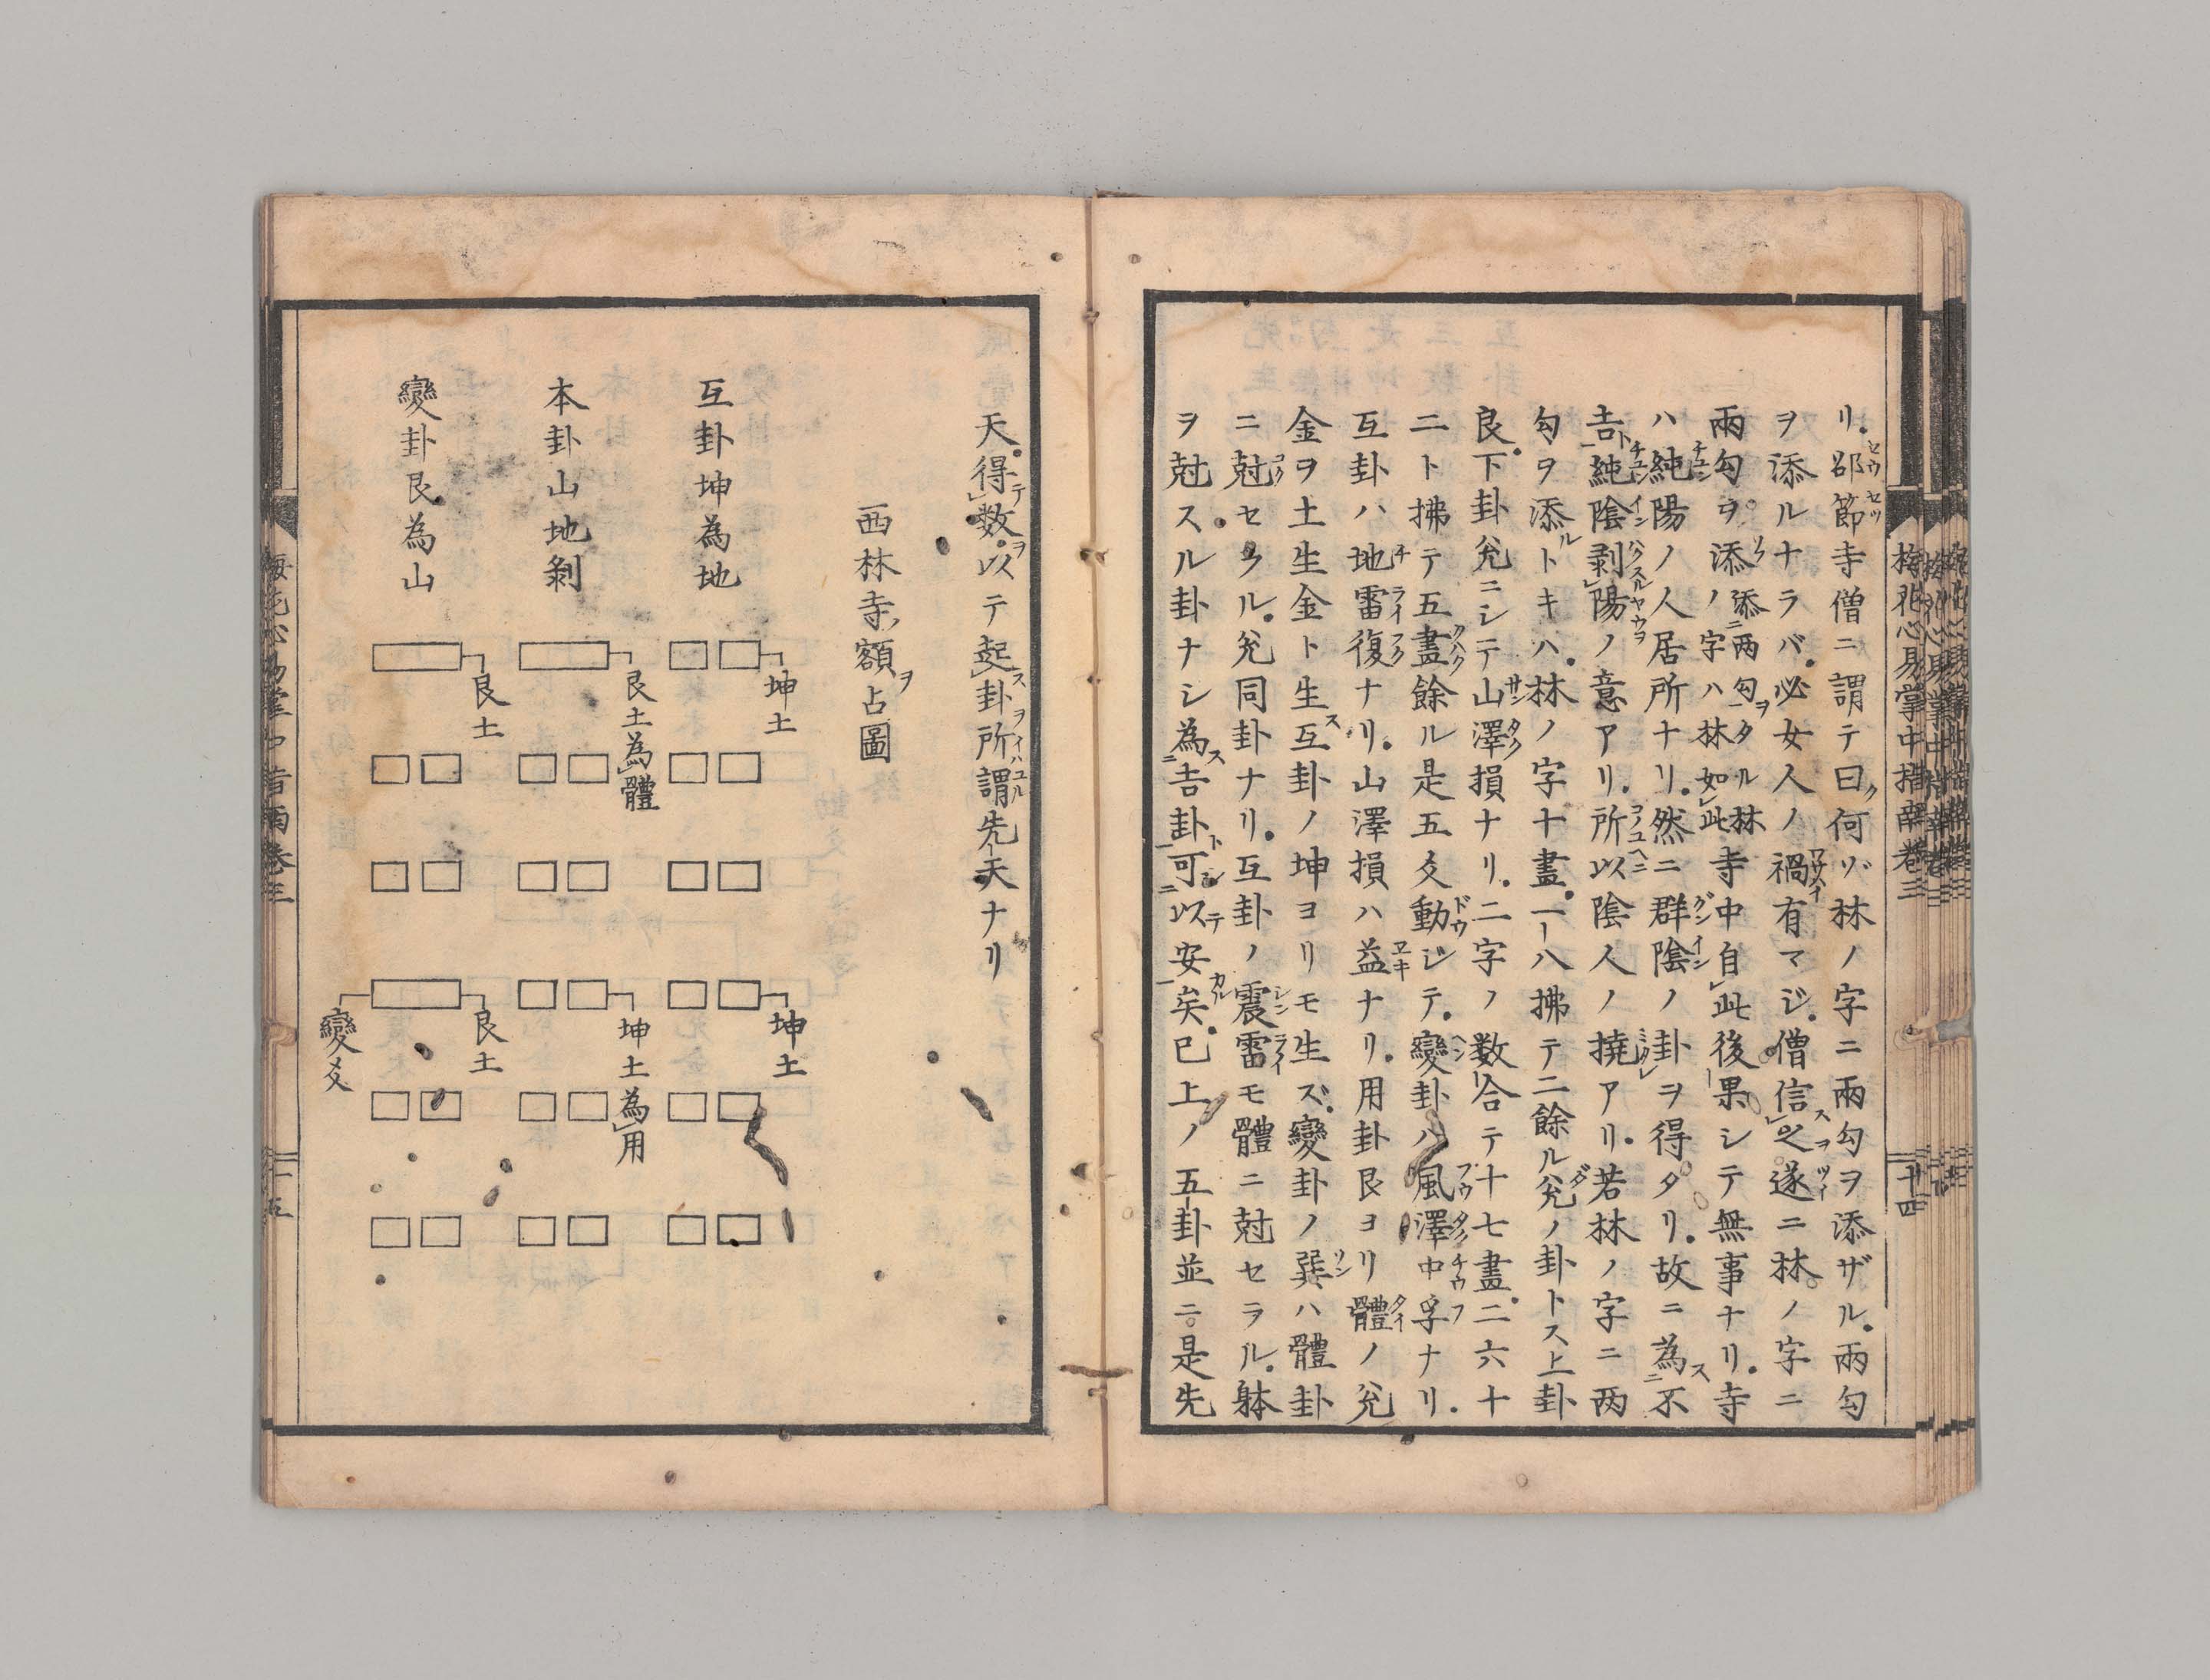 梅花心易掌中指南巻三
十四
リ。邵節寺僧ニ謂テ曰何ゾ林ノ字ニ兩勾ヲ添ザル。兩勾
ヲ添ルナラバ。必女人ノ禍有マジ。僧信之遂ニ林ノ字ニ
兩勾ヲ添ノ字ハ林如此寺中自此後果シテ無事ナリ。寺
添兩勾タル林
ハ純陽ノ人居所ナリ。然ニ群陰ノ卦ヲ得タリ。故ニ為不
吉純陰剥陽ノ意アリ。所以陰人ノ撓アリ。若林ノ字ニ两
勾ヲ添トキハ。林ノ字十畫。一八拂テ二餘ル兊ノ卦トス上卦
艮。下卦兊ニシテ山澤損ナリ。二字ノ数合テ十七畫。二六十
二ト拂テ五畫餘ル是五爻動ジテ。變卦ハ風澤中孚ナリ。
互卦ハ地雷復ナリ。山澤損ハ益ナリ。用卦艮ヨリ體ノ兊
金ヲ土生金ト生互卦ノ坤ヨリモ生ズ。變卦ノ巽ハ體卦
ニ尅セラル。兊同卦ナリ。互卦ノ震雷モ體ニ尅セラル。躰
ヲ尅スル卦ナシ為吉卦可以安矣。巳上ノ五卦並ニ是先
天。得数。以テ起卦所謂先天ナリ
西林寺ノ額ヲ占圖
互卦坤為地
坤土
坤土
本卦山地剝
艮土為體
坤土為用
變卦艮為山
艮土
艮土
變爻